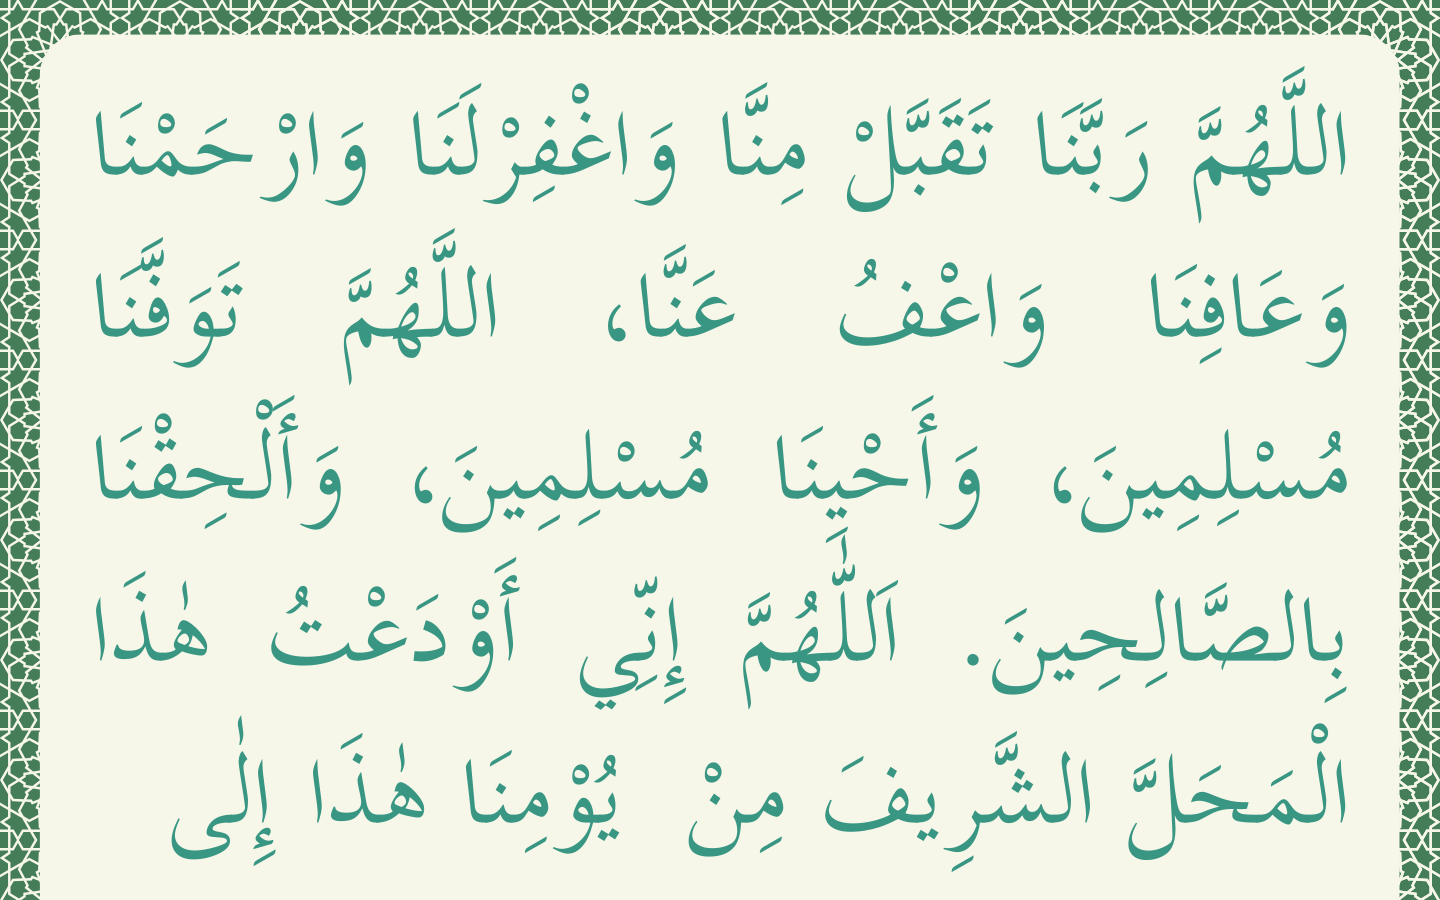 اللَّهُمَّ رَبَّنَا تَقَبَّلْ مِنَّا وَاغْفِرْلَنَا وَارْحَمْنَا
وَعَافِنَا وَاعْفُ عَنَّا، اللَّهُمَّ تَوَفَّنَا
مُسْلِمِينَ، وَأَحْيِنَا مُسْلِمِينَ، وَأَلْحِقْنَا
بِالصَّالِحِينَ. اَللّٰهُمَّ إِنِّي أَوْدَعْتُ هٰذَا
الْمَحَلَّ الشَّرِيفَ مِنْ يُوْمِنَا هٰذَا إِلٰى